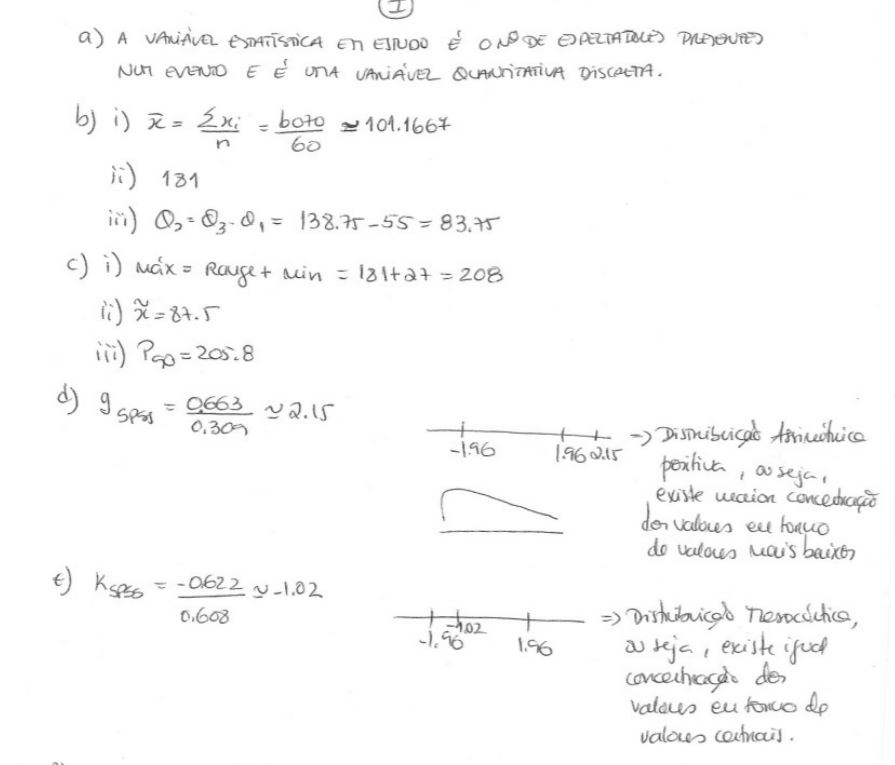 I
a) A VARIÁVEL ESTATÍSTICA EM ESTUDO É O Nº DE ESPECTADORES PRESENTES
NUM EVENTO E É UMA VARIÁVEL QUANTITATIVA DISCRETA.
b) i) x̄ = Σxᵢ/n = 6070/60 ≃ 101.1667
ii) 181
iii) Q₂ = Q₃ - Q₁ = 138.75 - 55 = 83.75
c) i) Máx = Range + Min = 181 + 27 = 208
ii) x̃ = 87.5
iii) P₉₀ = 205.8
d) g SPSS = 0.663/0.309 ≃ 2.15
-1.96 1.96 2.15
=> Distribuição Assimétrica
positiva, ou seja,
existe maior concentração
dos valores em torno
de valores mais baixos
e) K SPSS = -0.622/0.608 ≃ -1.02
-1.96 -1.02 1.96
=> Distribuição Mesocúrtica,
ou seja, existe igual
concentração dos
valores em torno de
valores centrais.